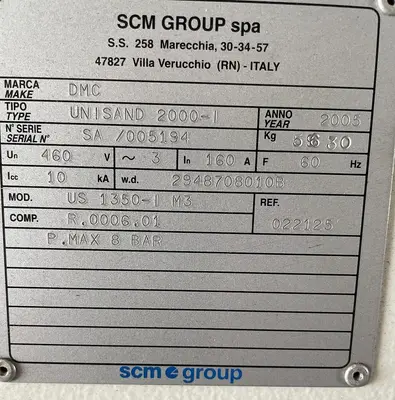 SCM GROUP spa
S.S. 258 Marecchia, 30-34-57
47827 Villa Verucchio (RN) - ITALY
MARCA MAKE DMC
TIPO TYPE UNISAND 2000-I ANNO YEAR 2005
N° SERIE SERIAL N° SA /005194 Kg
Un 460 V ~ 3 In 160 A F 60 Hz
Icc 10 kA w.d. 2948708010B
MOD. US 1350-I M3 REF.
COMP. R.0006.01 022125
P.MAX 8 BAR
scm group